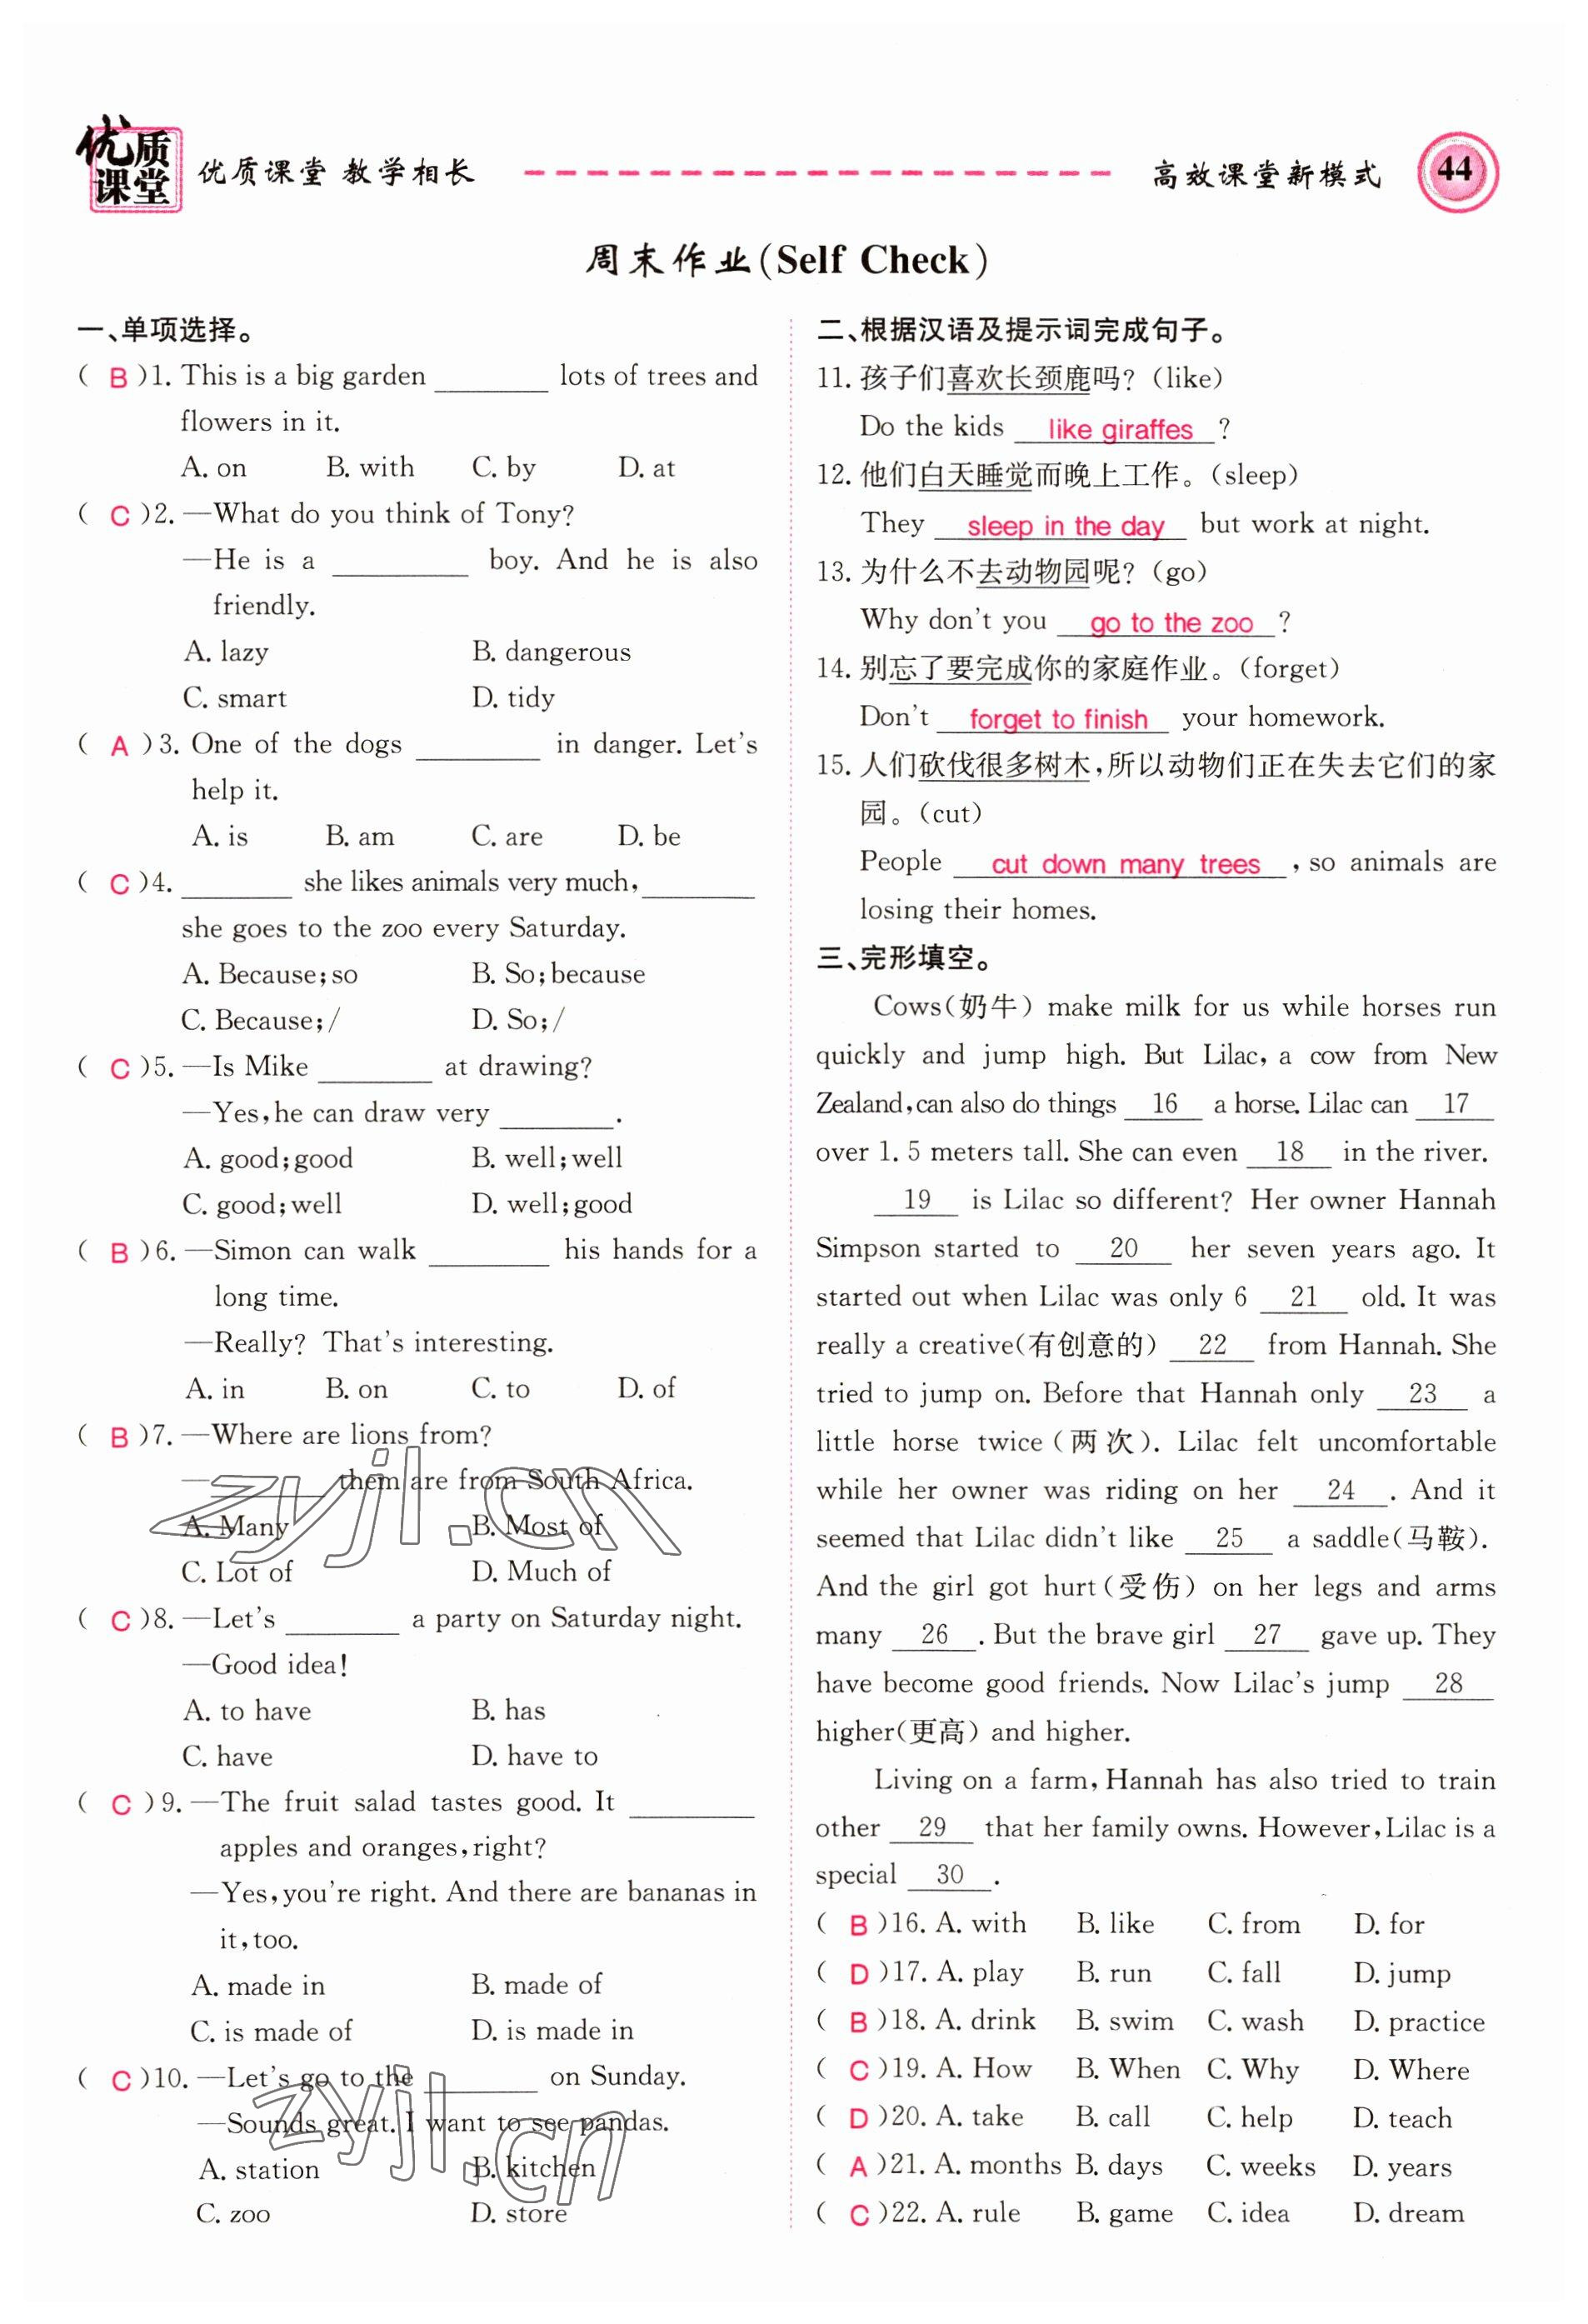 优质课堂 优质课堂 教学相长 高效课堂新模式 44
周末作业(Self Check)
一、单项选择。
( B )1. This is a big garden ________ lots of trees and
flowers in it.
A. on B. with C. by D. at
( C )2. —What do you think of Tony?
—He is a ________ boy. And he is also
friendly.
A. lazy B. dangerous
C. smart D. tidy
( A )3. One of the dogs ________ in danger. Let's
help it.
A. is B. am C. are D. be
( C )4. ________ she likes animals very much, ________
she goes to the zoo every Saturday.
A. Because;so B. So;because
C. Because;/ D. So;/
( C )5. —Is Mike ________ at drawing?
—Yes,he can draw very ________.
A. good;good B. well;well
C. good;well D. well;good
( B )6. —Simon can walk ________ his hands for a
long time.
—Really? That's interesting.
A. in B. on C. to D. of
( B )7. —Where are lions from?
—________ them are from South Africa.
A. Many B. Most of
C. Lot of D. Much of
zyjl.cn
( C )8. —Let's ________ a party on Saturday night.
—Good idea!
A. to have B. has
C. have D. have to
( C )9. —The fruit salad tastes good. It ________
apples and oranges,right?
—Yes,you're right. And there are bananas in
it,too.
A. made in B. made of
C. is made of D. is made in
( C )10. —Let's go to the ________ on Sunday.
—Sounds great. I want to see pandas.
A. station B. kitchen
C. zoo D. store
zyjl.cn
二、根据汉语及提示词完成句子。
11. 孩子们喜欢长颈鹿吗?(like)
Do the kids like giraffes ?
12. 他们白天睡觉而晚上工作。(sleep)
They sleep in the day but work at night.
13. 为什么不去动物园呢?(go)
Why don't you go to the zoo ?
14. 别忘了要完成你的家庭作业。(forget)
Don't forget to finish your homework.
15. 人们砍伐很多树木,所以动物们正在失去它们的家
园。(cut)
People cut down many trees , so animals are
losing their homes.
三、完形填空。
Cows(奶牛) make milk for us while horses run
quickly and jump high. But Lilac, a cow from New
Zealand,can also do things 16 a horse. Lilac can 17
over 1. 5 meters tall. She can even 18 in the river.
19 is Lilac so different? Her owner Hannah
Simpson started to 20 her seven years ago. It
started out when Lilac was only 6 21 old. It was
really a creative(有创意的) 22 from Hannah. She
tried to jump on. Before that Hannah only 23 a
little horse twice(两次). Lilac felt uncomfortable
while her owner was riding on her 24 . And it
seemed that Lilac didn't like 25 a saddle(马鞍).
And the girl got hurt(受伤) on her legs and arms
many 26 . But the brave girl 27 gave up. They
have become good friends. Now Lilac's jump 28
higher(更高) and higher.
Living on a farm,Hannah has also tried to train
other 29 that her family owns. However,Lilac is a
special 30 .
( B )16. A. with B. like C. from D. for
( D )17. A. play B. run C. fall D. jump
( B )18. A. drink B. swim C. wash D. practice
( C )19. A. How B. When C. Why D. Where
( D )20. A. take B. call C. help D. teach
( A )21. A. months B. days C. weeks D. years
( C )22. A. rule B. game C. idea D. dream